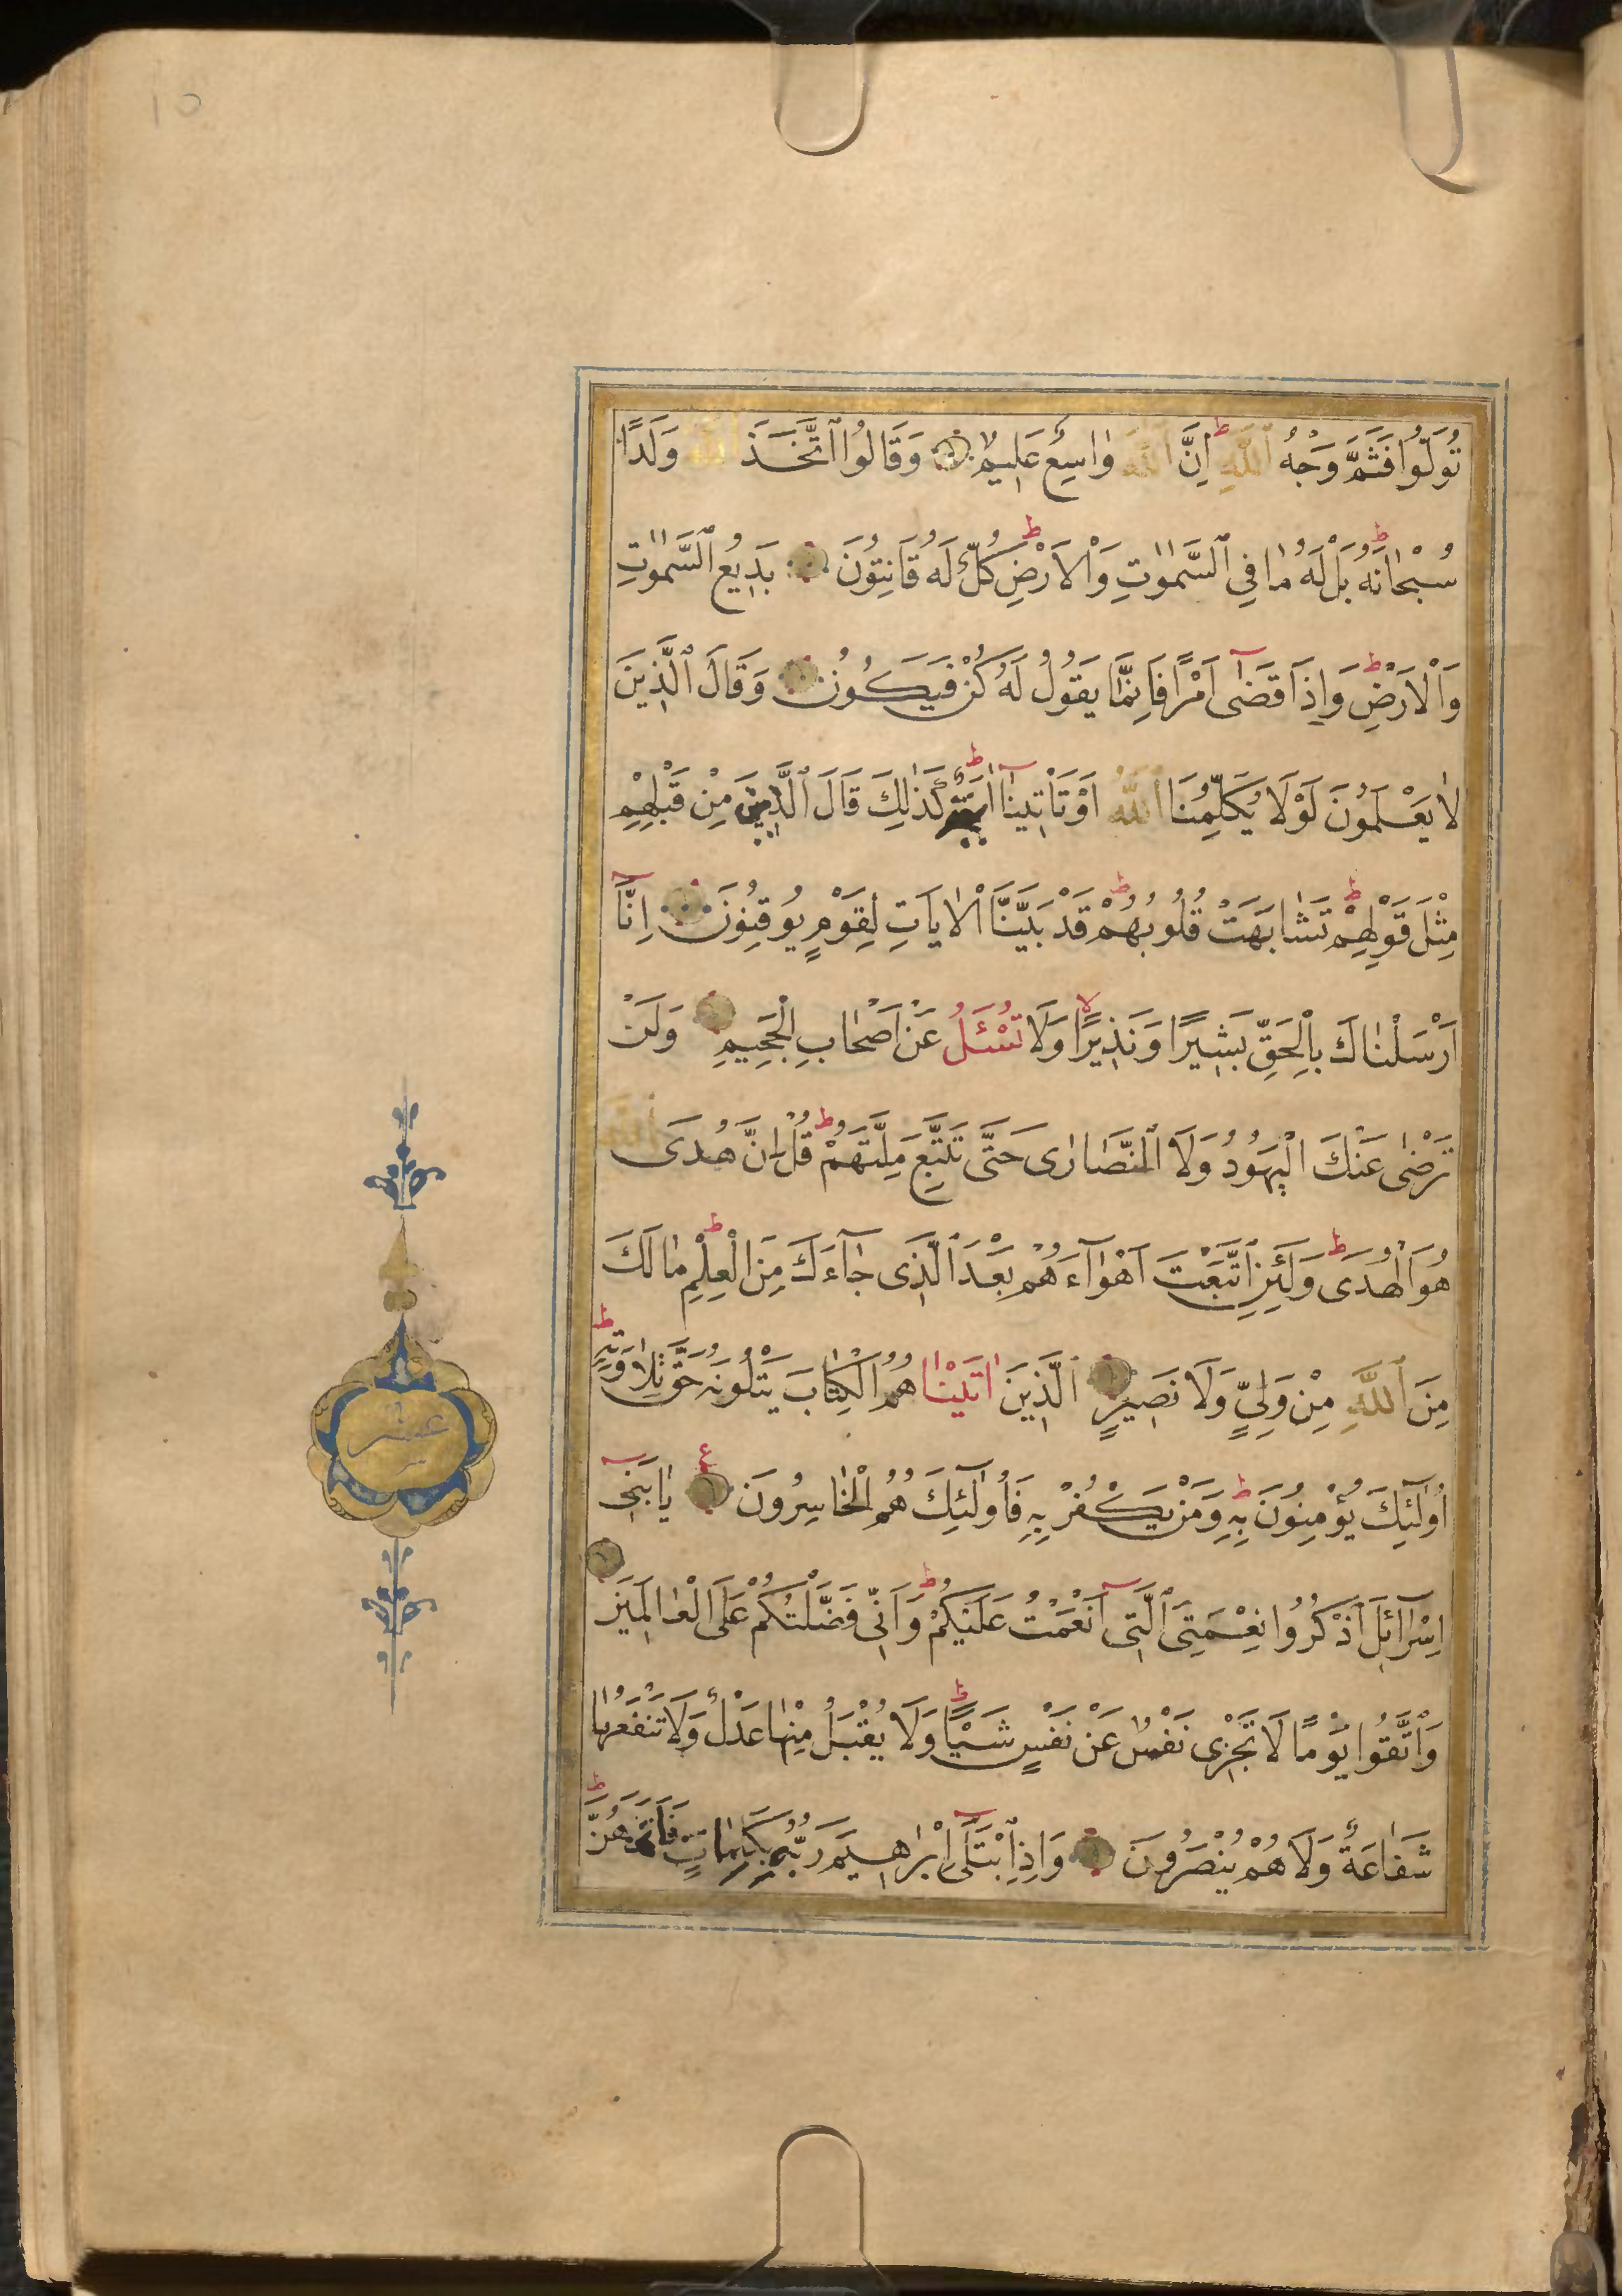 10
تُوَلُّوا فَثَمَّ وَجْهُ ٱللّٰهِ ط اِنَّ ٱللّٰهَ وٰاسِعٌ عَلِيمٌ وَقَالُوا ٱتَّخَذَ ٱللّٰهُ وَلَدًا
سُبْحٰانَهُ ط بَلْ لَهُ مٰا فِي ٱلسَّمٰوٰتِ وَٱلْاَرْضِ ط كُلٌّ لَهُ قَانِتُونَ بَدِيعُ ٱلسَّمٰوٰتِ
وَٱلْاَرْضِ ط وَاِذَا قَضٰٓى اَمْرًا فَاِنَّمَا يَقُولُ لَهُ كُنْ فَيَكُونُ وَقَالَ ٱلَّذِينَ
لٰا يَعْلَمُونَ لَوْلَا يُكَلِّمُنَا ٱللّٰهُ اَوْ تَاْتِينٰٓا اٰيَةٌ ط كَذٰلِكَ قَالَ ٱلَّذِينَ مِنْ قَبْلِهِمْ
مِثْلَ قَوْلِهِمْ ط تَشٰابَهَتْ قُلُوبُهُمْ ط قَدْ بَيَّنَّا ٱلْاٰيَاتِ لِقَوْمٍ يُوقِنُونَ اِنَّآ
اَرْسَلْنٰاكَ بِالْحَقِّ بَشِيرًا وَنَذِيرًا لا وَلَا تُسْـَٔلُ عَنْ اَصْحٰابِ الْجَحِيمِ وَلَنْ
تَرْضٰى عَنْكَ الْيَهُودُ وَلَا ٱلنَّصَارٰى حَتّٰى تَتَّبِعَ مِلَّتَهُمْ ط قُلْ اِنَّ هُدَى ٱللّٰهِ
هُوَ الْهُدٰى ط وَلَئِنِ اتَّبَعْتَ اَهْوٰٓاءَهُمْ بَعْدَ ٱلَّذِى جٰٓاءَكَ مِنَ الْعِلْمِ ط مٰا لَكَ
مِنَ ٱللّٰهِ مِنْ وَلِيٍّ وَلَا نَصِيرٍ ٱلَّذِينَ اٰتَيْنٰا هُمُ الْكِتٰابَ يَتْلُونَهُ حَقَّ تِلٰاوَتِهِ ط
اُولٰٓئِكَ يُؤْمِنُونَ بِهِ ط وَمَنْ يَكْفُرْ بِهِ فَاُولٰٓئِكَ هُمُ الْخٰاسِرُونَ ع يٰا بَنِىٓ
اِسْرٰٓائِلَ ٱذْكُرُوا نِعْمَتِىَ ٱلَّتِىٓ اَنْعَمْتُ عَلَيْكُمْ ط وَاَنِّى فَضَّلْتُكُمْ عَلَى الْعٰالَمِينَ
وَٱتَّقُوا يَوْمًا لَا تَجْزِى نَفْسٌ عَنْ نَفْسٍ شَيْـًٔا ط وَلَا يُقْبَلُ مِنْهٰا عَدْلٌ وَلَا تَنْفَعُهٰا
شَفٰاعَةٌ وَلَا هُمْ يُنْصَرُونَ وَاِذِ ٱبْتَلٰٓى اِبْرٰاهِيمَ رَبُّهُ بِكَلِمٰاتٍ فَاَتَمَّهُنَّ ط
عشر